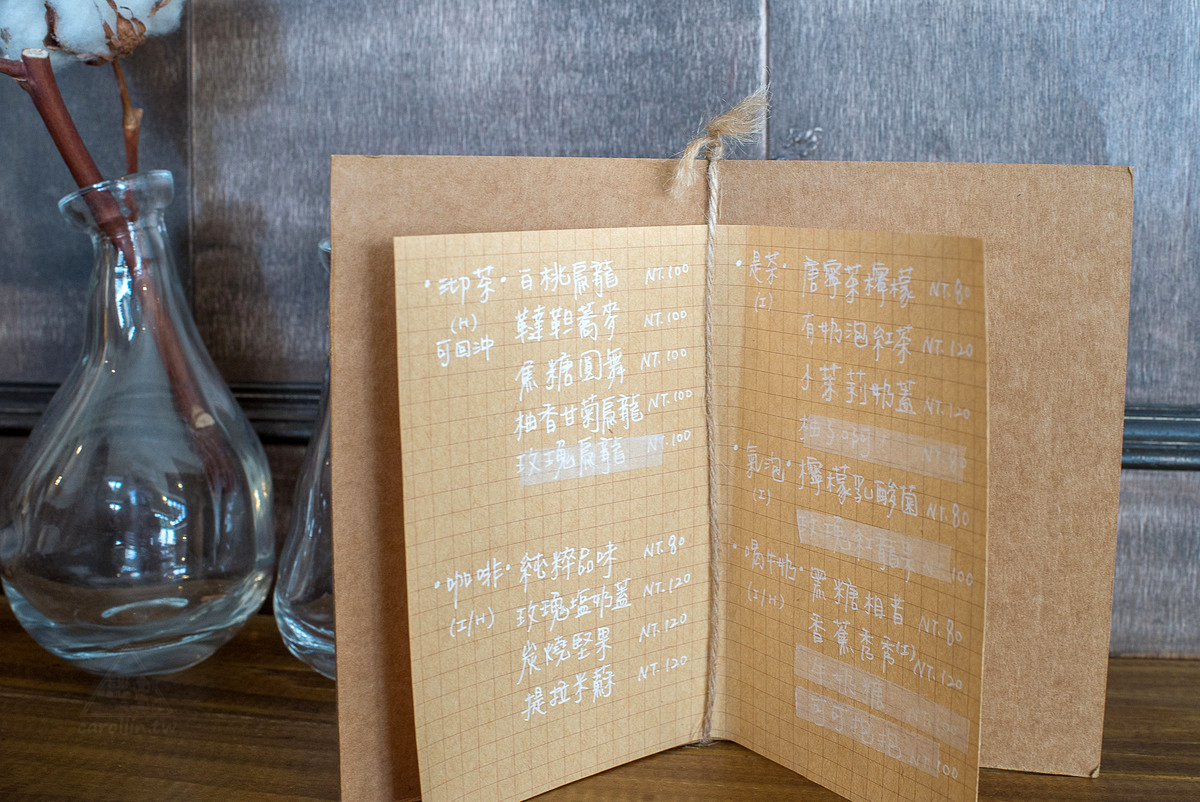 ·沏茶·白桃烏龍 NT.100
(H) 韃靼蕎麥 NT.100
可回沖 焦糖圓舞 NT.100
柚香甘菊烏龍 NT.100
玫瑰烏龍 NT.100
·咖啡·純粹品味 NT.80
(I/H) 玫瑰塩奶蓋 NT.120
炭燒堅果 NT.120
提拉米蘇 NT.120
·是茶·唐寧茶檸檬 NT.80
(I) 有奶泡紅茶 NT.120
小茉莉奶蓋 NT.120
NT.80
·氣泡·檸檬乳酸菌 NT.80
(I) 玫瑰紅蘋果 NT.100
·喝牛奶·黑糖相普 NT.80
(I/H) 香蕉秀秀(I) NT.120
可可抱抱 NT.100
carollin.tw